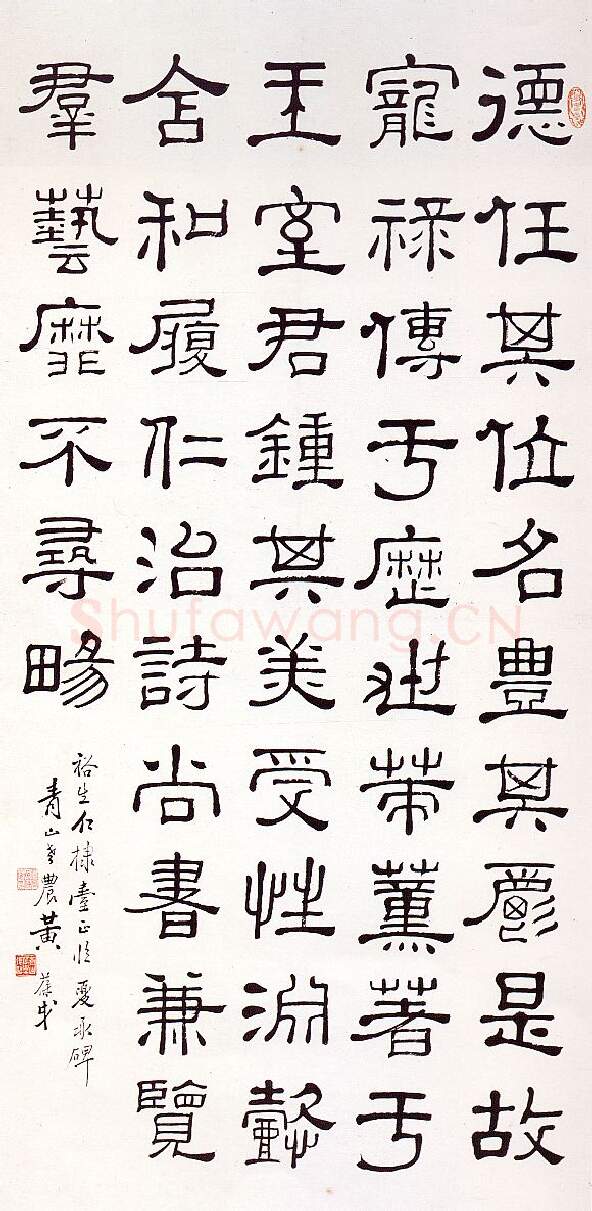 德任其位名豐其爵是故
寵祿傳于歷世策薰著于
王室君鍾其美受性淵懿
含和履仁治詩尚書兼覽
羣藝靡不尋畼
裕生仁棣臺正臨夏承碑
青山老農黃葆戉
Shufawang.CN